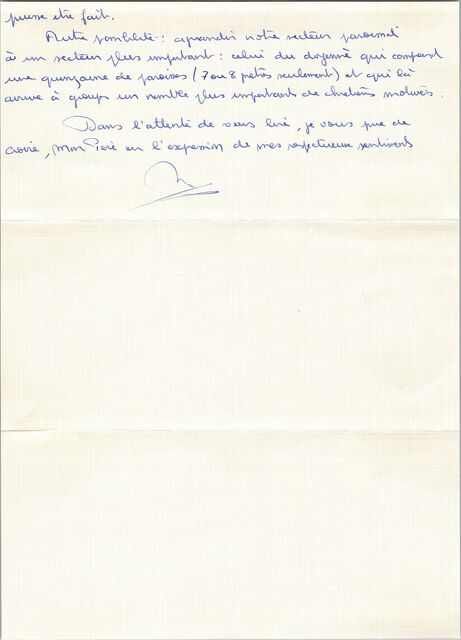 puisse être fait.
Autre possibilité : agrandir notre secteur paroissial
à un secteur plus important : celui du doyenné qui comprend
une quinzaine de paroisses (7 ou 8 prêtres seulement) et qui là
arrive à grouper un nombre plus importants de chrétiens motivés.
Dans l'attente de vous lire, je vous prie de
croire, Mon Père en l'expression de mes respectueux sentiments